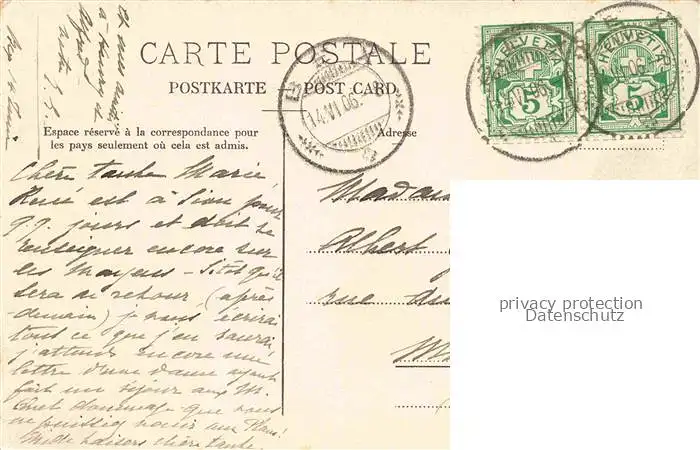 CARTE POSTALE
POSTKARTE — POST CARD
Espace réservé à la correspondance pour
les pays seulement où cela est admis.
Adresse
HELVETIA
5
HELVETIA
5
14.VI.06.
Chère tante Marie
René est à Sion pour
q.q. jours et doit se
renseigner encore sur
les Mayens – Sitôt qu'il
sera de retour (après
demain) je vous écrirai
tout ce que j'en saurai
j'attends encore une
lettre d'une dame ayant
fait un séjour aux M.
Quel dommage que vous
ne puissiez venir aux Plans!
Mille baisers chère tante
Madame
Albert
rue du
privacy protection
Datenschutz